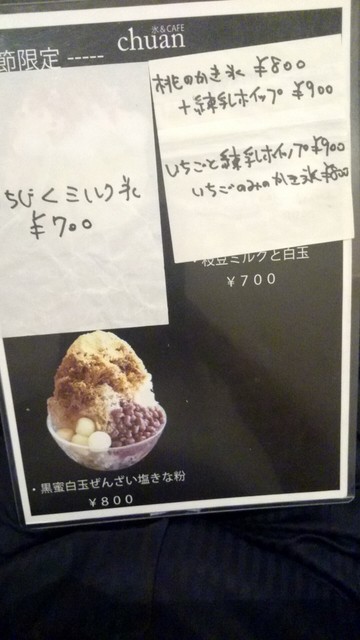 氷&CAFE
chuan
節限定 -----
桃のかき氷 ¥800
+練乳ホイップ ¥900
いちごと練乳ホイップ¥900
いちごのみのかき氷 ¥800
ちびくミルク氷
¥700
・枝豆ミルクと白玉
¥700
・黒蜜白玉ぜんざい塩きな粉
¥800